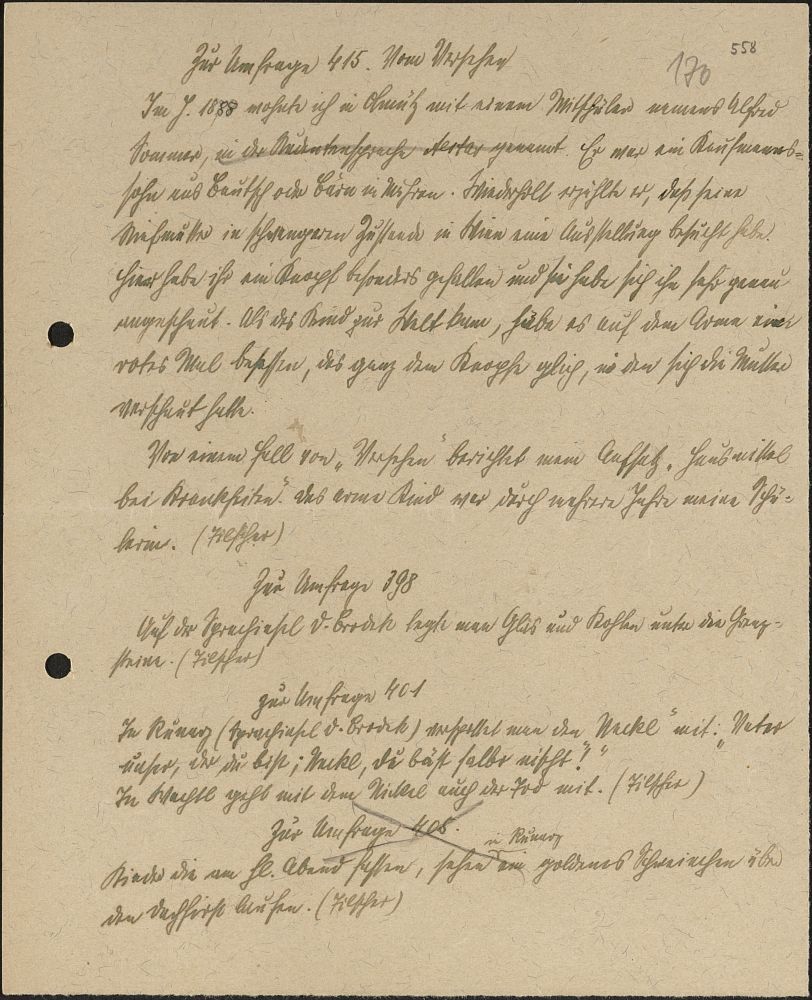 558
170
Zur Umfrage 415. Vom Versehen
Im J. 1888 wohnte ich in Olmütz mit einem Mitschüler namens Alfred
Sommer, in der Studentensprache Nestor genannt. Er war ein Kaufmanns-
sohn aus Bautsch oder Bärn in Mähren. Wiederholt erzählte er, daß seine
Stiefmutter in schwangerem Zustande in Wien eine Ausstellung besucht habe.
Hier habe ihr ein Knopf besonders gefallen und sie habe sich ihn sehr genau
angeschaut. Als das Kind zur Welt kam, habe es auf dem Arme ein
rotes Mal besessen, das ganz dem Knopfe glich, in den sich die Mutter
verschaut hatte.
Von einem Fall von „Versehen" berichtet mein Aufsatz „Hausmittel
bei Krankheiten". Das arme Kind war durch mehrere Jahre meine Schü-
lerin. (Tilscher)
Zur Umfrage 398
Auf der Sprachinsel D.-Brodek legte man Glas und Kohlen unter die Grenz-
steine. (Tilscher)
Zur Umfrage 401
In Runarz (Sprachinsel D.-Brodek) verspottet man den Neckl mit: „Vater
unser, der du bist; Neckl, du bäst salbr nischt!"
In Wachtl geht mit dem Nickel auch der Tod mit. (Tilscher)
Zur Umfrage 405.
in Runarz
Kinder die am hl. Abend fasten, sehen ein goldenes Schweinchen über
den Dachfirst laufen. (Tilscher)